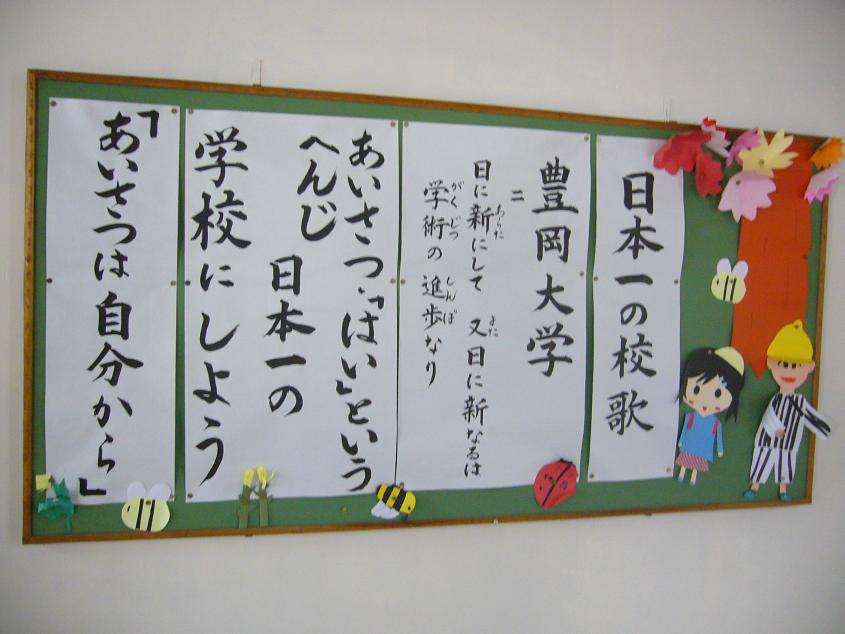 日本一の校歌
豊岡大学
二
日に新にして 又日に新なるは
あらた
また
学術の進歩なり
がくじつ
しんぽ
あいさつ・「はい」という
へんじ
日本一の
学校にしよう
「あいさつは自分から」